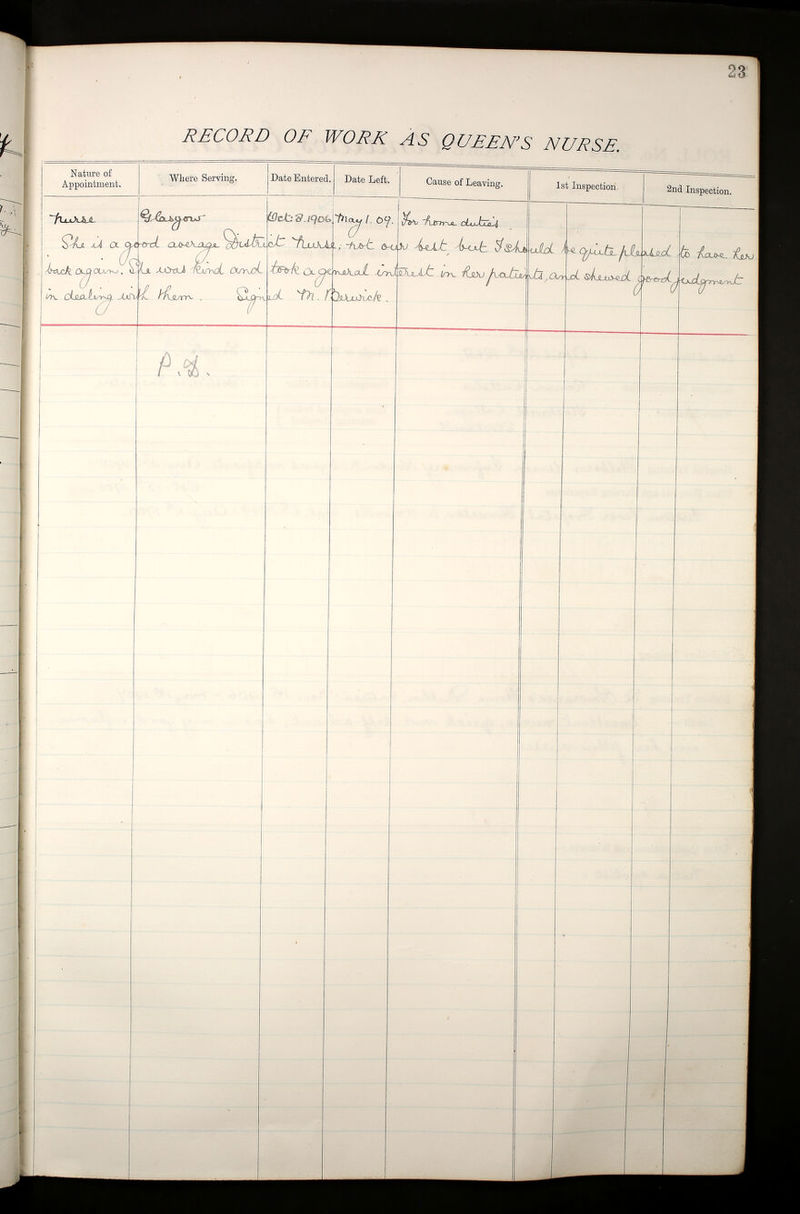 23
RECORD OF WORK AS QUEEN'S NURSE.
Nature of Appointment. Where Serving. Date Entered. Date Left. Cause of Leaving. 1st Inspection. 2nd Inspection.
Nurse Glasgow Oct: 8. 1906. May 1. 09. For home duties.
She is a good average District Nurse, not our best, but I should be quite pleased to have her
back again. She was kind and took a general interest in her patients, and shewed good judgment
in dealing with them. Signed M. Berwick.
P.S.